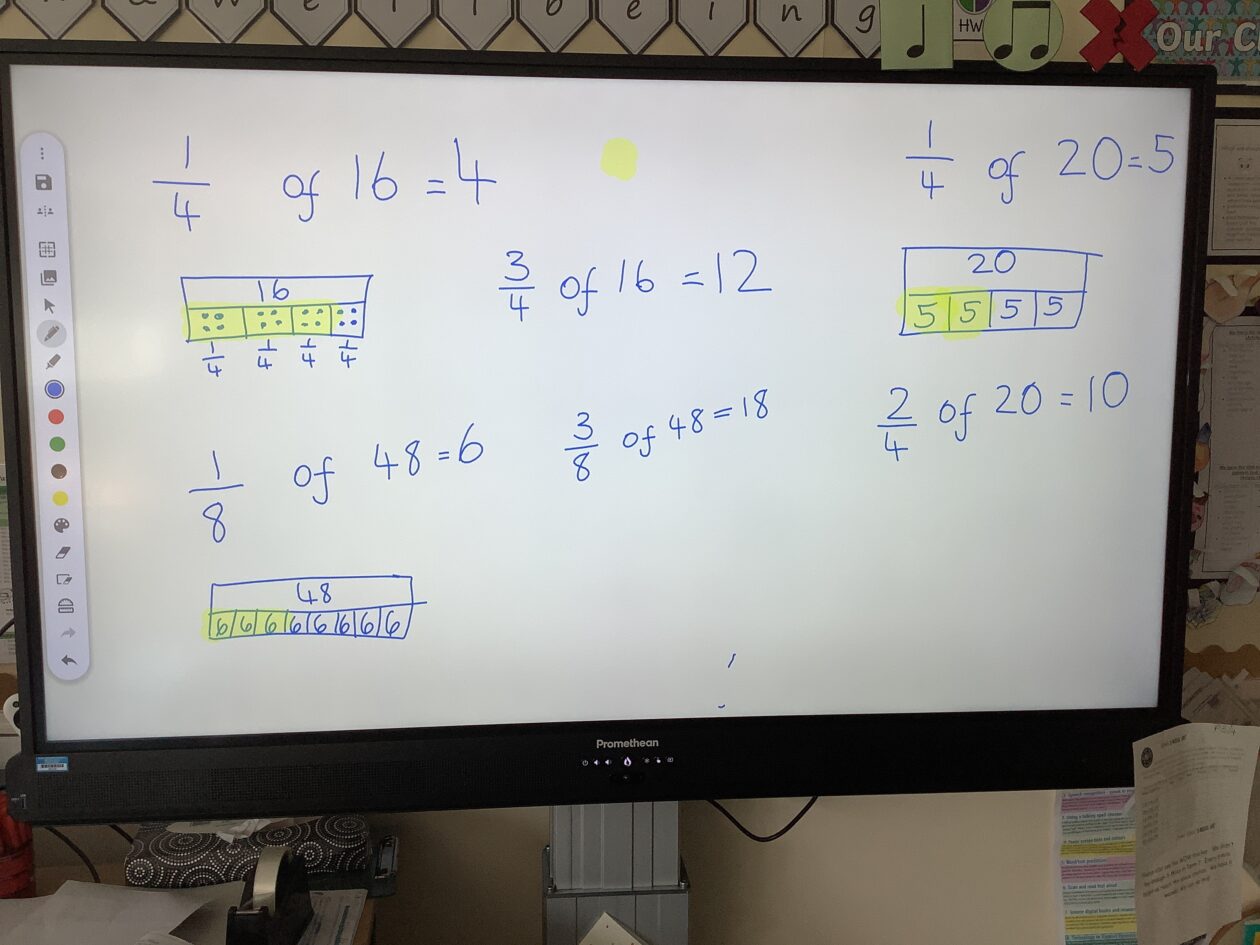 w e l l b e i n g
HW
Our C
1/4 of 16 = 4
16
1/4 1/4 1/4 1/4
3/4 of 16 = 12
1/4 of 20 = 5
20
5 5 5 5
2/4 of 20 = 10
1/8 of 48 = 6
3/8 of 48 = 18
48
6 6 6 6 6 6 6 6
Promethean